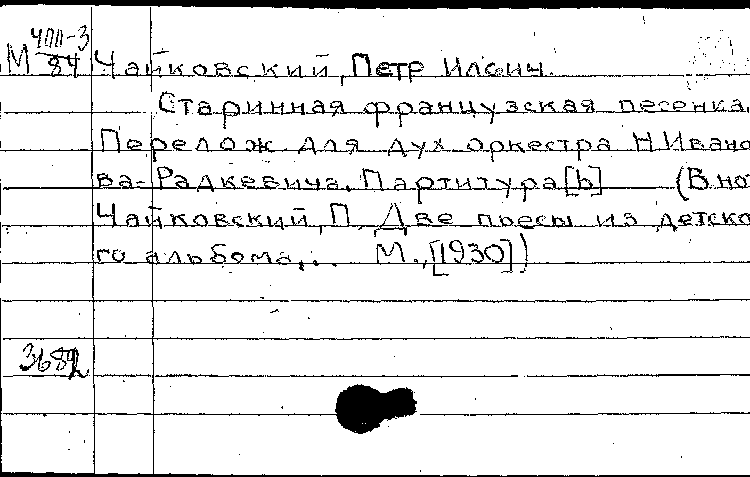 М ЧПП-3/84 Чайковский, Петр Ильич.
Старинная французская песенка.
Перелож для дух оркестра Н.Ивано
ва-Радкевича. Партитура [b] (В нот
Чайковский, П. Две пьесы из детско
го альбома... М., [1930])
3682